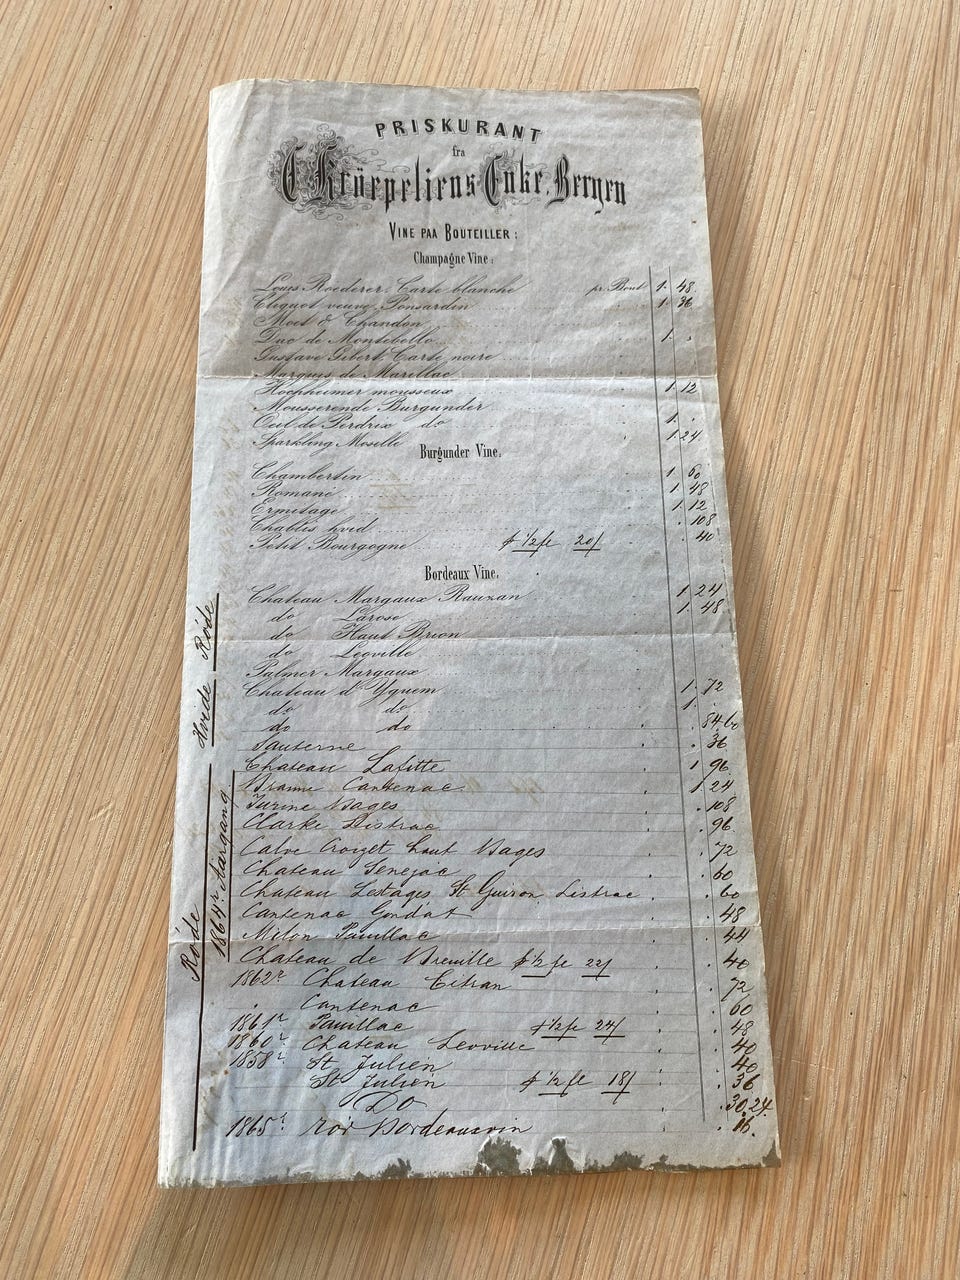 PRISKURANT
fra
C. Krüepeliens Enke, Bergen
VINE PAA BOUTEILLER:
Champagne Vine:
Louis Roederer, Carte blanche pr. Bout 1. 48
Cliquot veuve Ponsardin 1. 36
Moet & Chandon
Duc de Montebello 1. .
Gustave Gibert, Carte noire
Marquis de Marillac
Hochheimer mousseux 1. 12
Mousserende Burgunder
Oeil de Perdrix do 1. .
Sparkling Moselle 1. 24
Burgunder Vine.
Chambertin 1. 60
Romane 1. 48
Ermitage 1. 12
Chablis hvid . 108
Petit Bourgogne 1/2 fl 20/ . 40
Bordeaux Vine.
Chateau Margaux Rauzan 1. 24
do Larose 1. 48
do Haut Brion
do Leoville
Palmer Margaux
Chateau d'Yquem 1. 72
do do 1.
do do . 84. 60
Sauterne . 36
Chateau Lafitte 1. 96
Branne Cantenac 1. 24
Bages . 108
Clarke Listrac . 96
Calve Croizet haut Bages . 72
Chateau Senejac . 60
Chateau Lestages, St Guiron, Listrac . 60
Cantenac Gondat . 48
Milon Pauillac . 44
Chateau de Breuille 1/2 fl 22/ . 40
1862r Chateau Citran . 72
Cantenac . 60
1861r Pauillac 1/2 fl 24/ . 48
1860r Chateau Leoville . 40
1858r St Julien . 40
St Julien 1/2 fl 18/ . 36
Do . 30. 24
1865r Bordeauxvin . 16.
Røde
Hvide
1864r Aargang
Røde